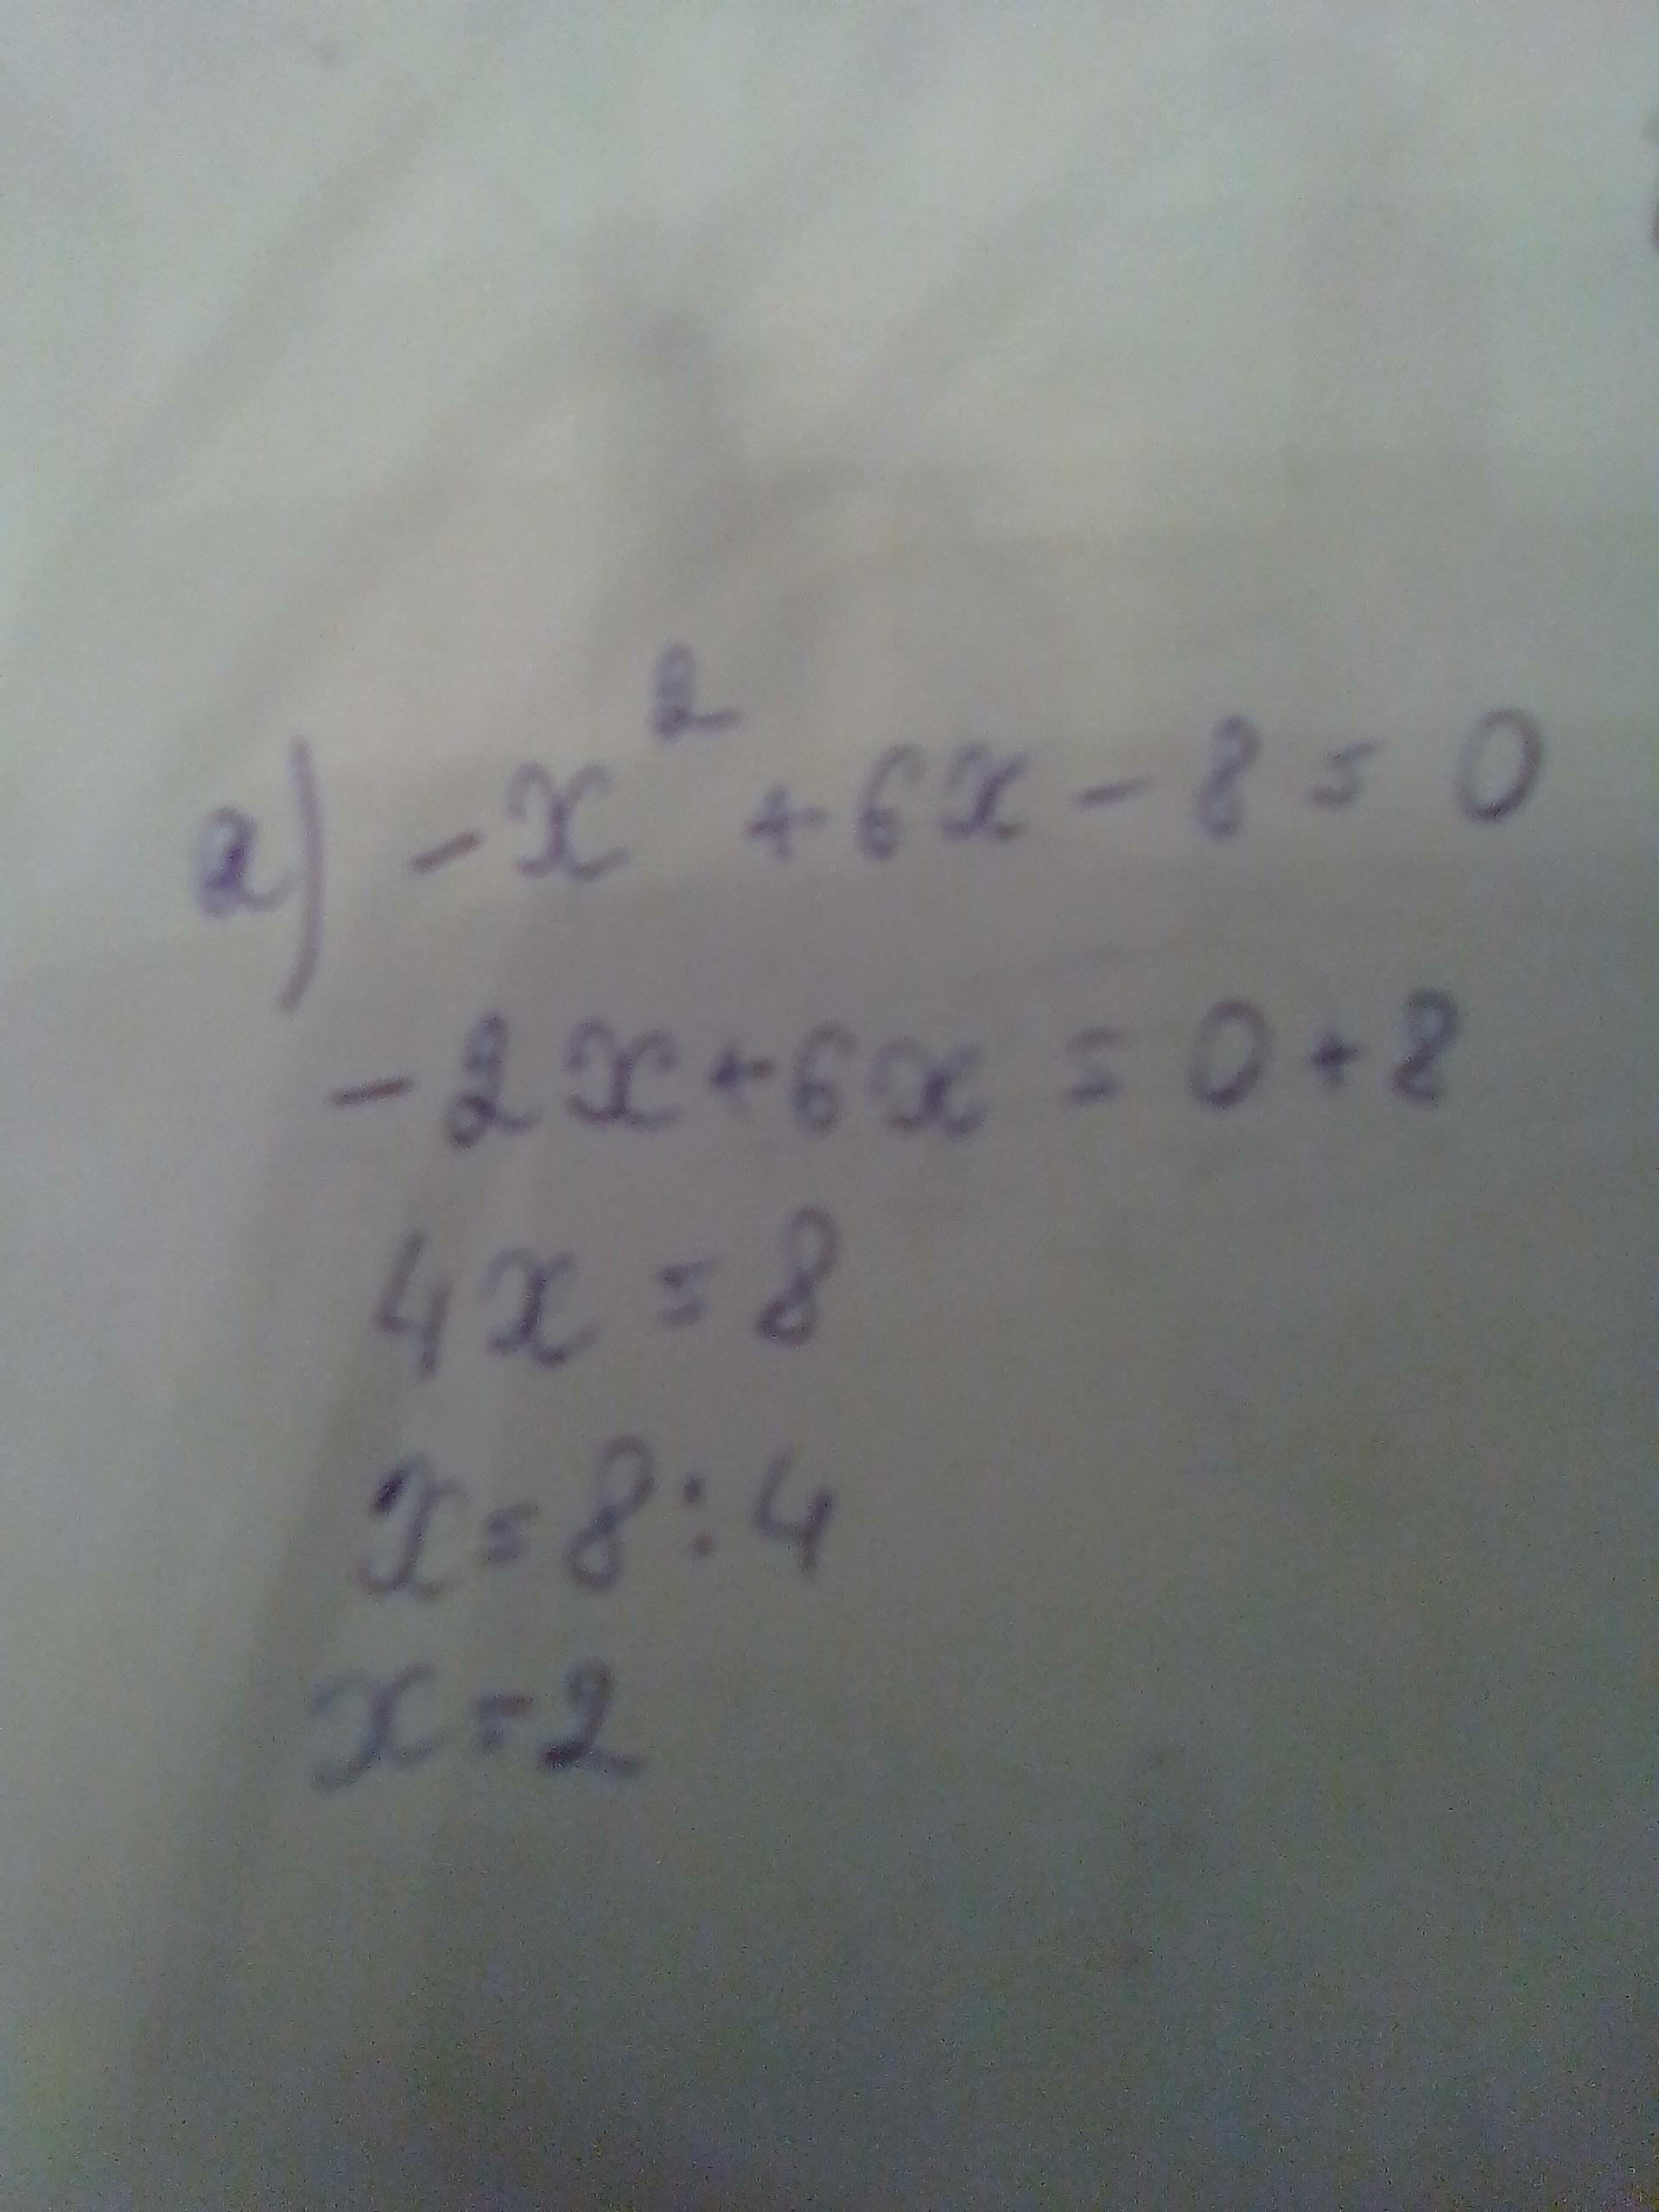 а) -x² + 6x - 8 = 0
-2x + 6x = 0 + 8
4x = 8
x = 8 : 4
x = 2